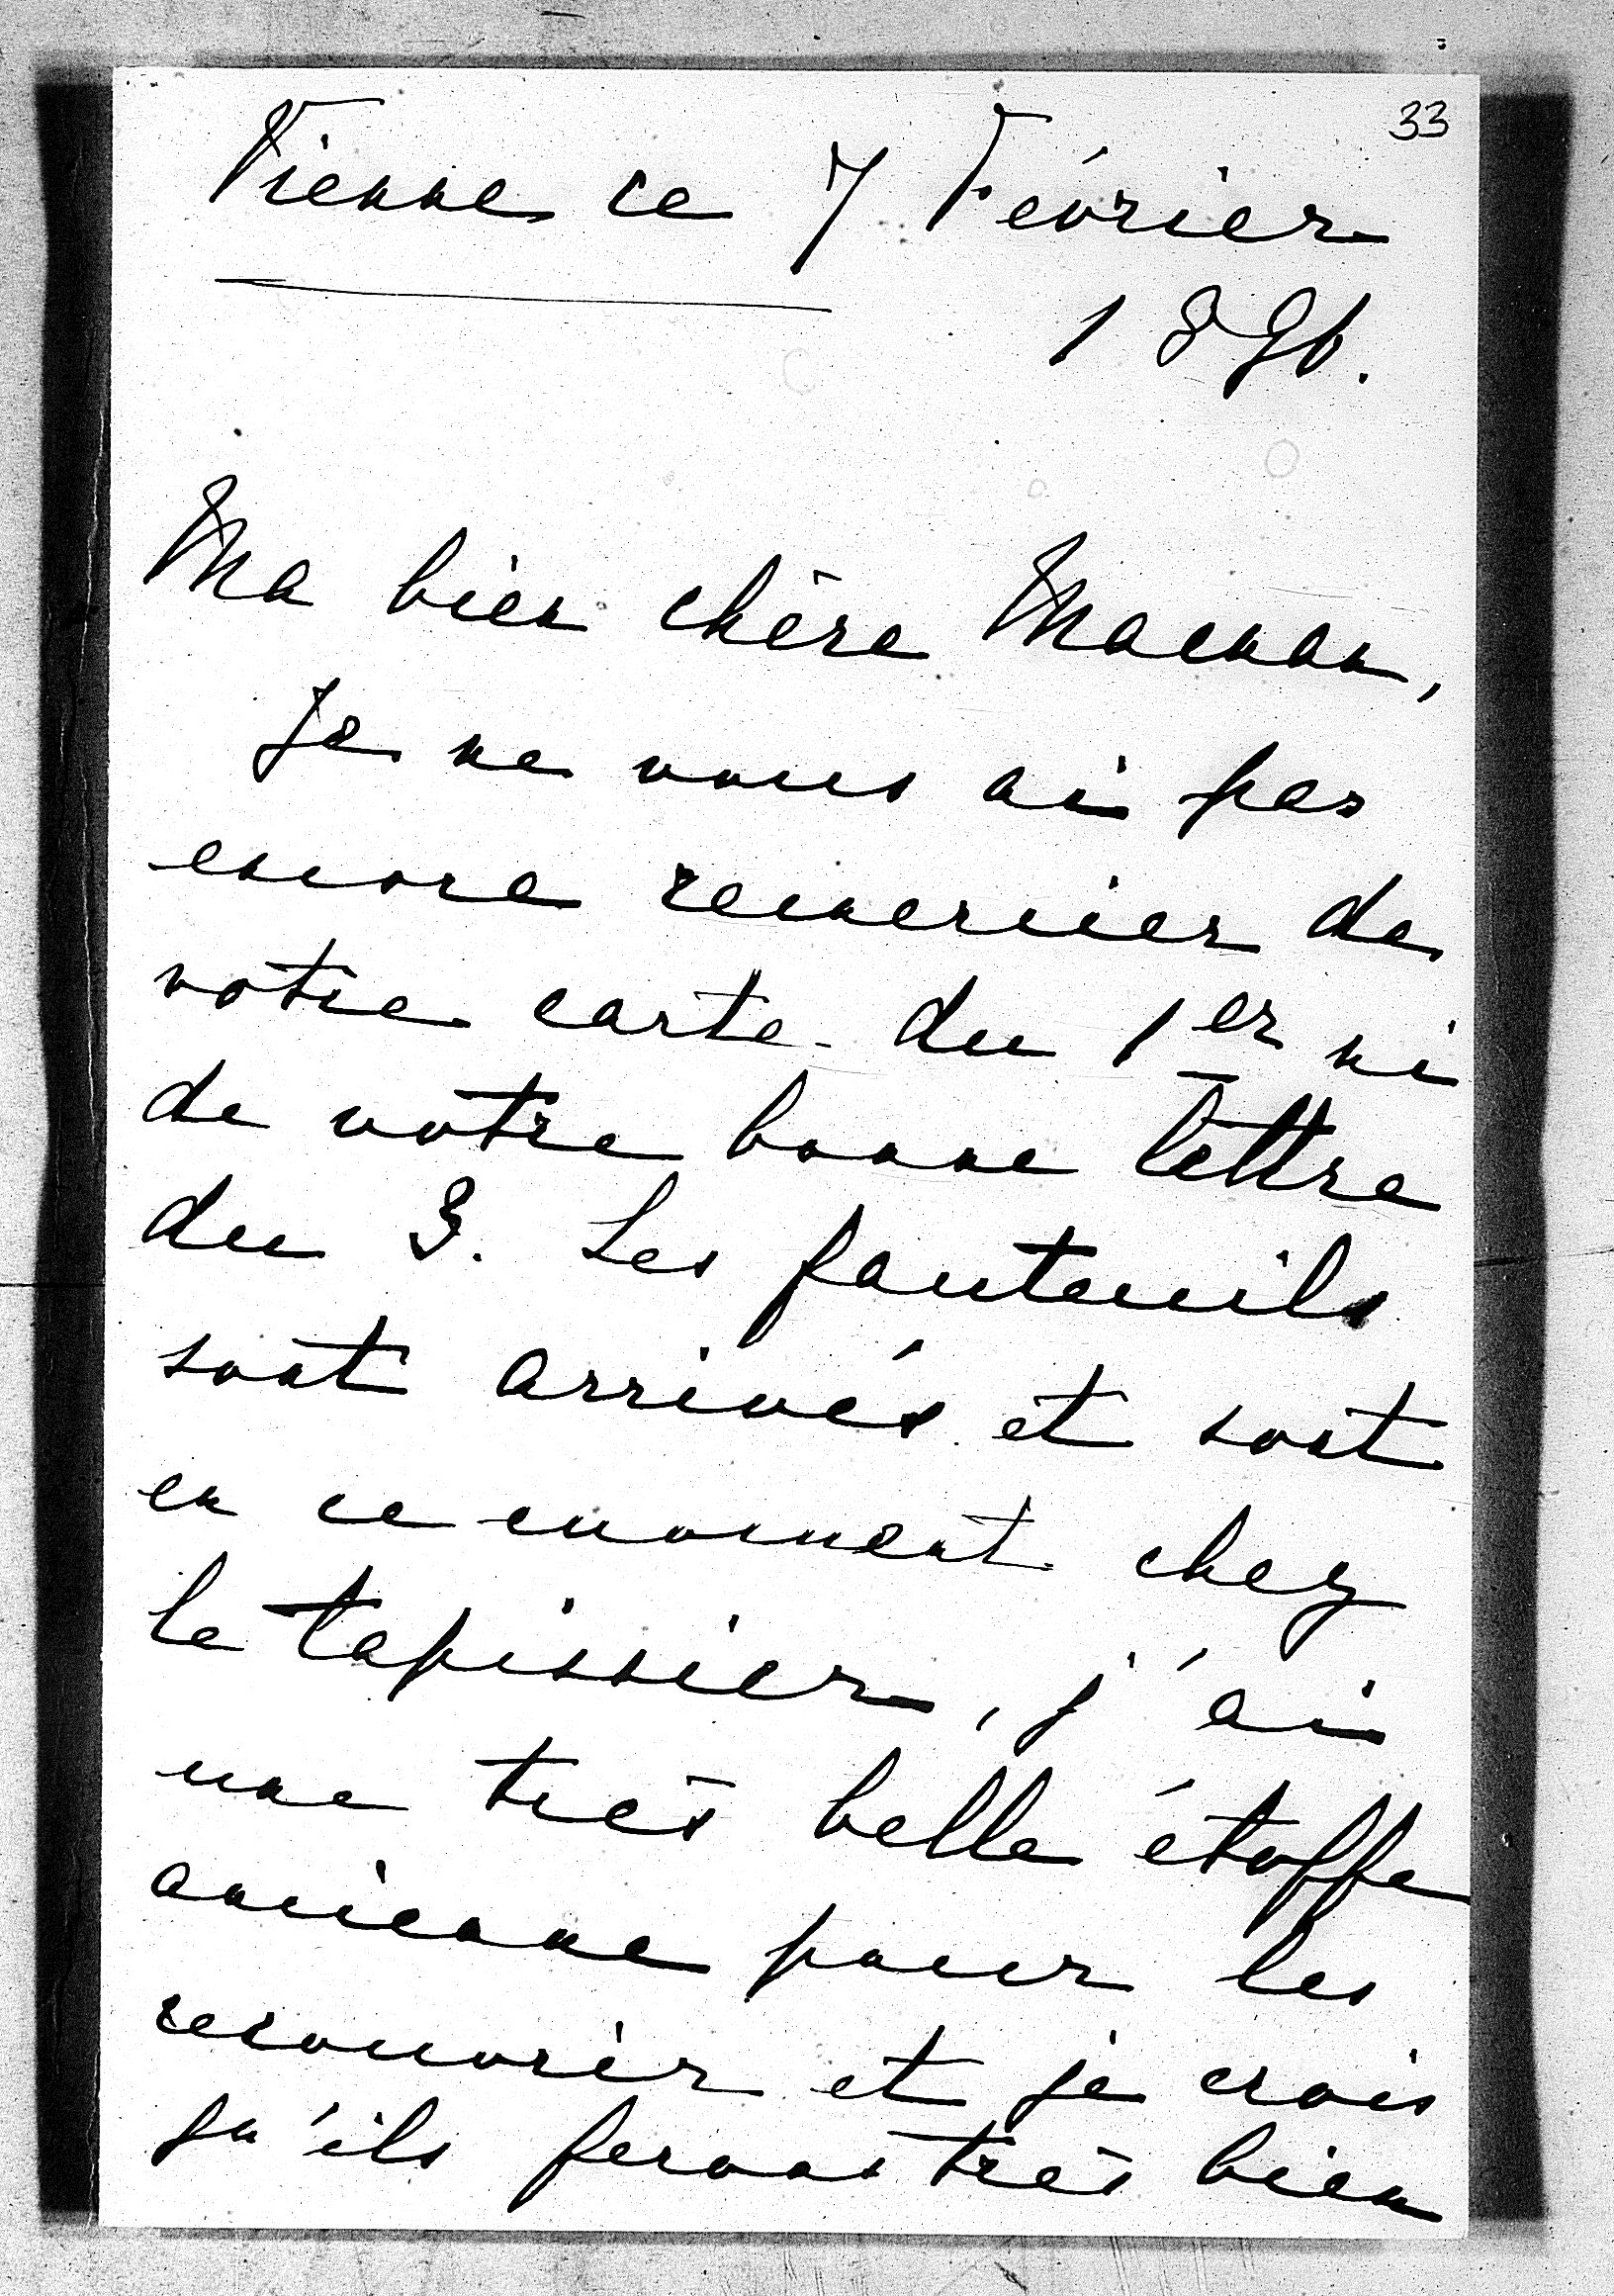 33
Vienne ce 7 Février
1896.
Ma bien chère Maman,
Je ne vous ai pas
encore remercier de
votre carte du 1er ni
de votre bonne lettre
du 3. Les fauteuils
sont arrivés et sont
en ce moment chez
le tapissier, j'ai
une très belle étoffe
ancienne pour les
recouvrir et je crois
qu'ils feront très bien